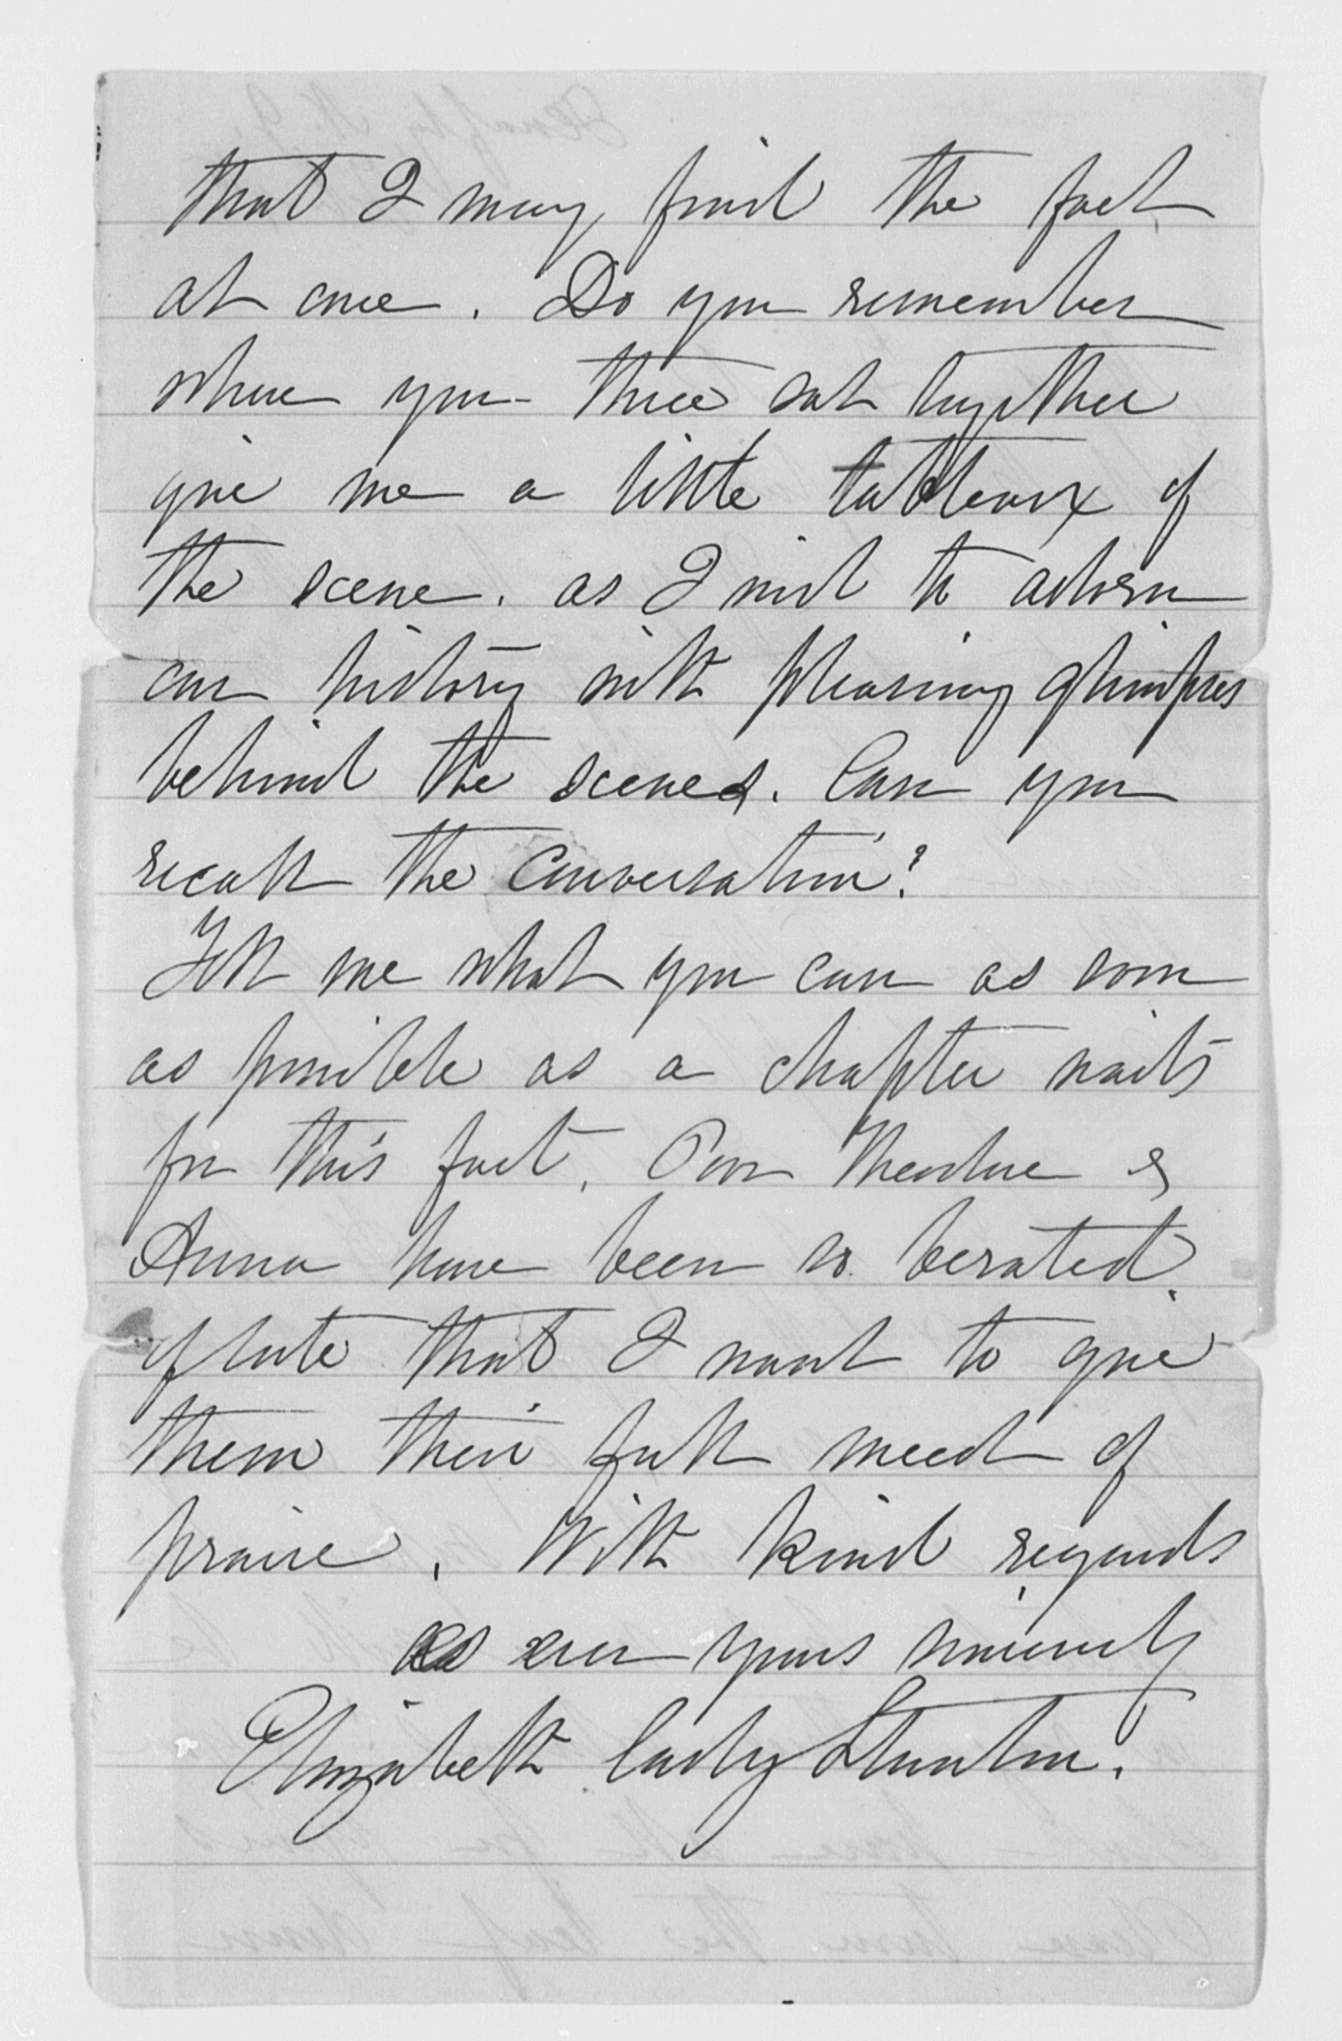 that I may find the fact
at once. Do you remember
where you three sat together
give me a little tableaux of
the scene. as I wish to adorn
our history with pleasing glimpses
behind the scenes. Can you
recall the conversation?
Tell me what you can as soon
as possible as a chapter waits
for this fact. Poor Theodore &
Anna have been so berated
of late that I want to give
them their full meed of
praise. With kind regards
as ever yours sincerely
Elizabeth Cady Stanton.